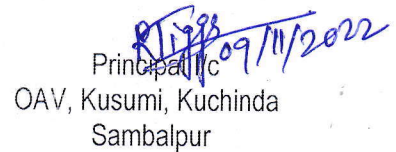 RTigga 09/11/2022
Principal I/c
OAV, Kusumi, Kuchinda
Sambalpur